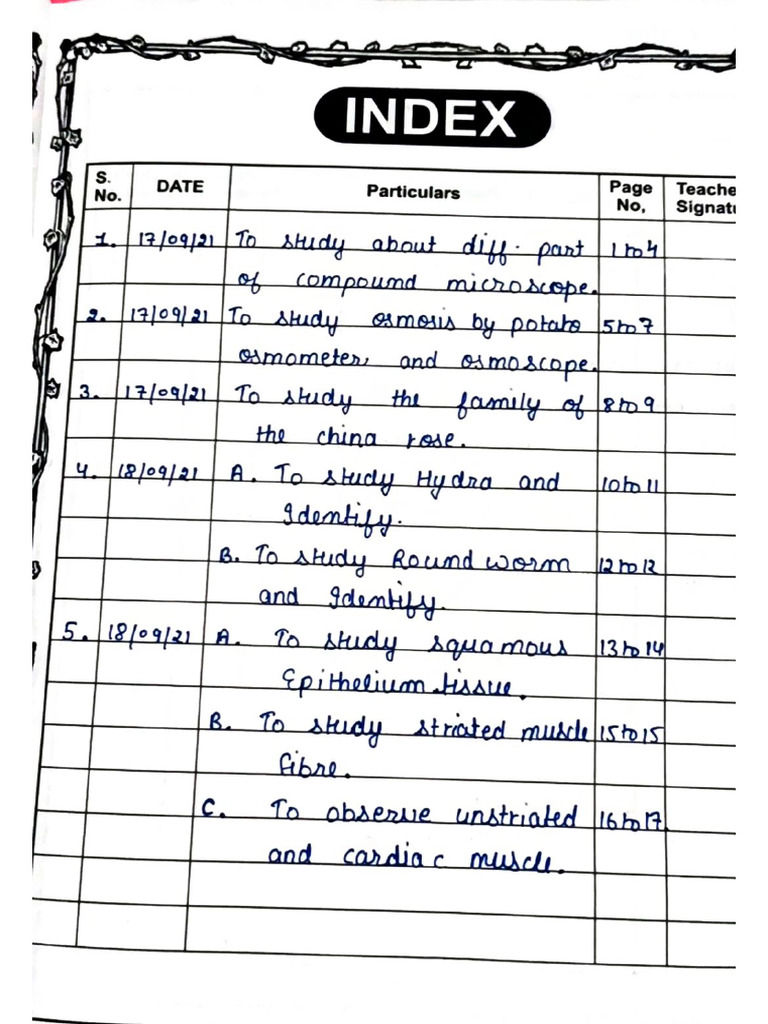 INDEX
S. No. DATE Particulars Page No, Teache Signatu
1. 17/09/21 To study about diff. part 1 to 4
of compound microscope.
2. 17/09/21 To study osmosis by potato 5 to 7
osmometer, and osmoscope.
3. 17/09/21 To study the family of 8 to 9
the china rose.
4. 18/09/21 A. To study Hydra and 10 to 11
Identify.
B. To study Round worm 12 to 12
and Identify.
5. 18/09/21 A. To study squamous 13 to 14
Epithelium tissue.
B. To study striated muscle 15 to 15
fibre.
C. To observe unstriated 16 to 17
and cardiac muscle.